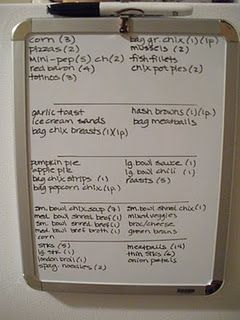 corn (3)
pizzas (2)
mini-pep (5) ch (2)
red baron (4)
totinos (3)
bag gr. chix (1) (1p)
mussels (2)
fish fillets
chix pot pies (2)
garlic toast
ice cream sands
bag chix breasts (1) (1p)
hash browns (1) (1p)
bag meatballs
pumpkin pie
apple pie
bag chix strips (1)
bag popcorn chix (1p)
lg. bowl sauce (1)
lg. bowl chili (1)
roasts (5)
sm. bowl chix soup (7)
med. bowl shred beef (1)
sm. bowl shred beef (1)
med. bowl beef broth (1)
corn
sm. bowl shred chix (1)
mixed veggies
broc/cheese
green beans
stks (5)
lg. stk (1)
london broil (1)
spag. noodles (2)
meatballs (14)
thin stks (6)
onion petals